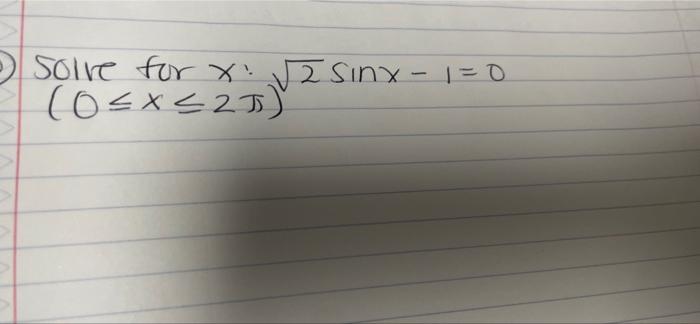 Solve for x: √2 sinx - 1 = 0
(0 ≤ x ≤ 2π)